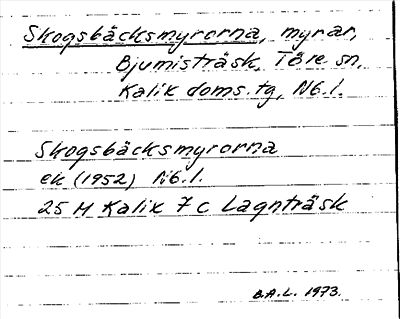 Skogsbäcksmyrorna, myrar,
Bjumisträsk, Töre sn,
Kalix doms. tg, Nb. l.
Skogsbäcksmyrorna
ek (1952) Nb. l.
25 M Kalix 7 c Lagnträsk
B.A.L. 1973.